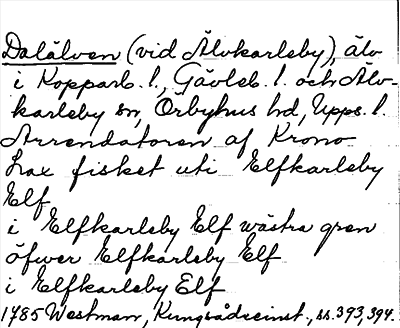 Dalälven (vid Älvkarleby), älv
i Kopparb. l., Gävleb. l. och Älv-
karleby sn, Örbyhus hd, Upps. l.
Arrendatoren af Krono
Lax fisket uti Elfkarleby
Elf
i Elfkarleby Elf wästra gren
öfwer Elfkarleby Elf
i Elfkarleby Elf
1785 Westman, Kungsådseinst., ss. 393, 394.